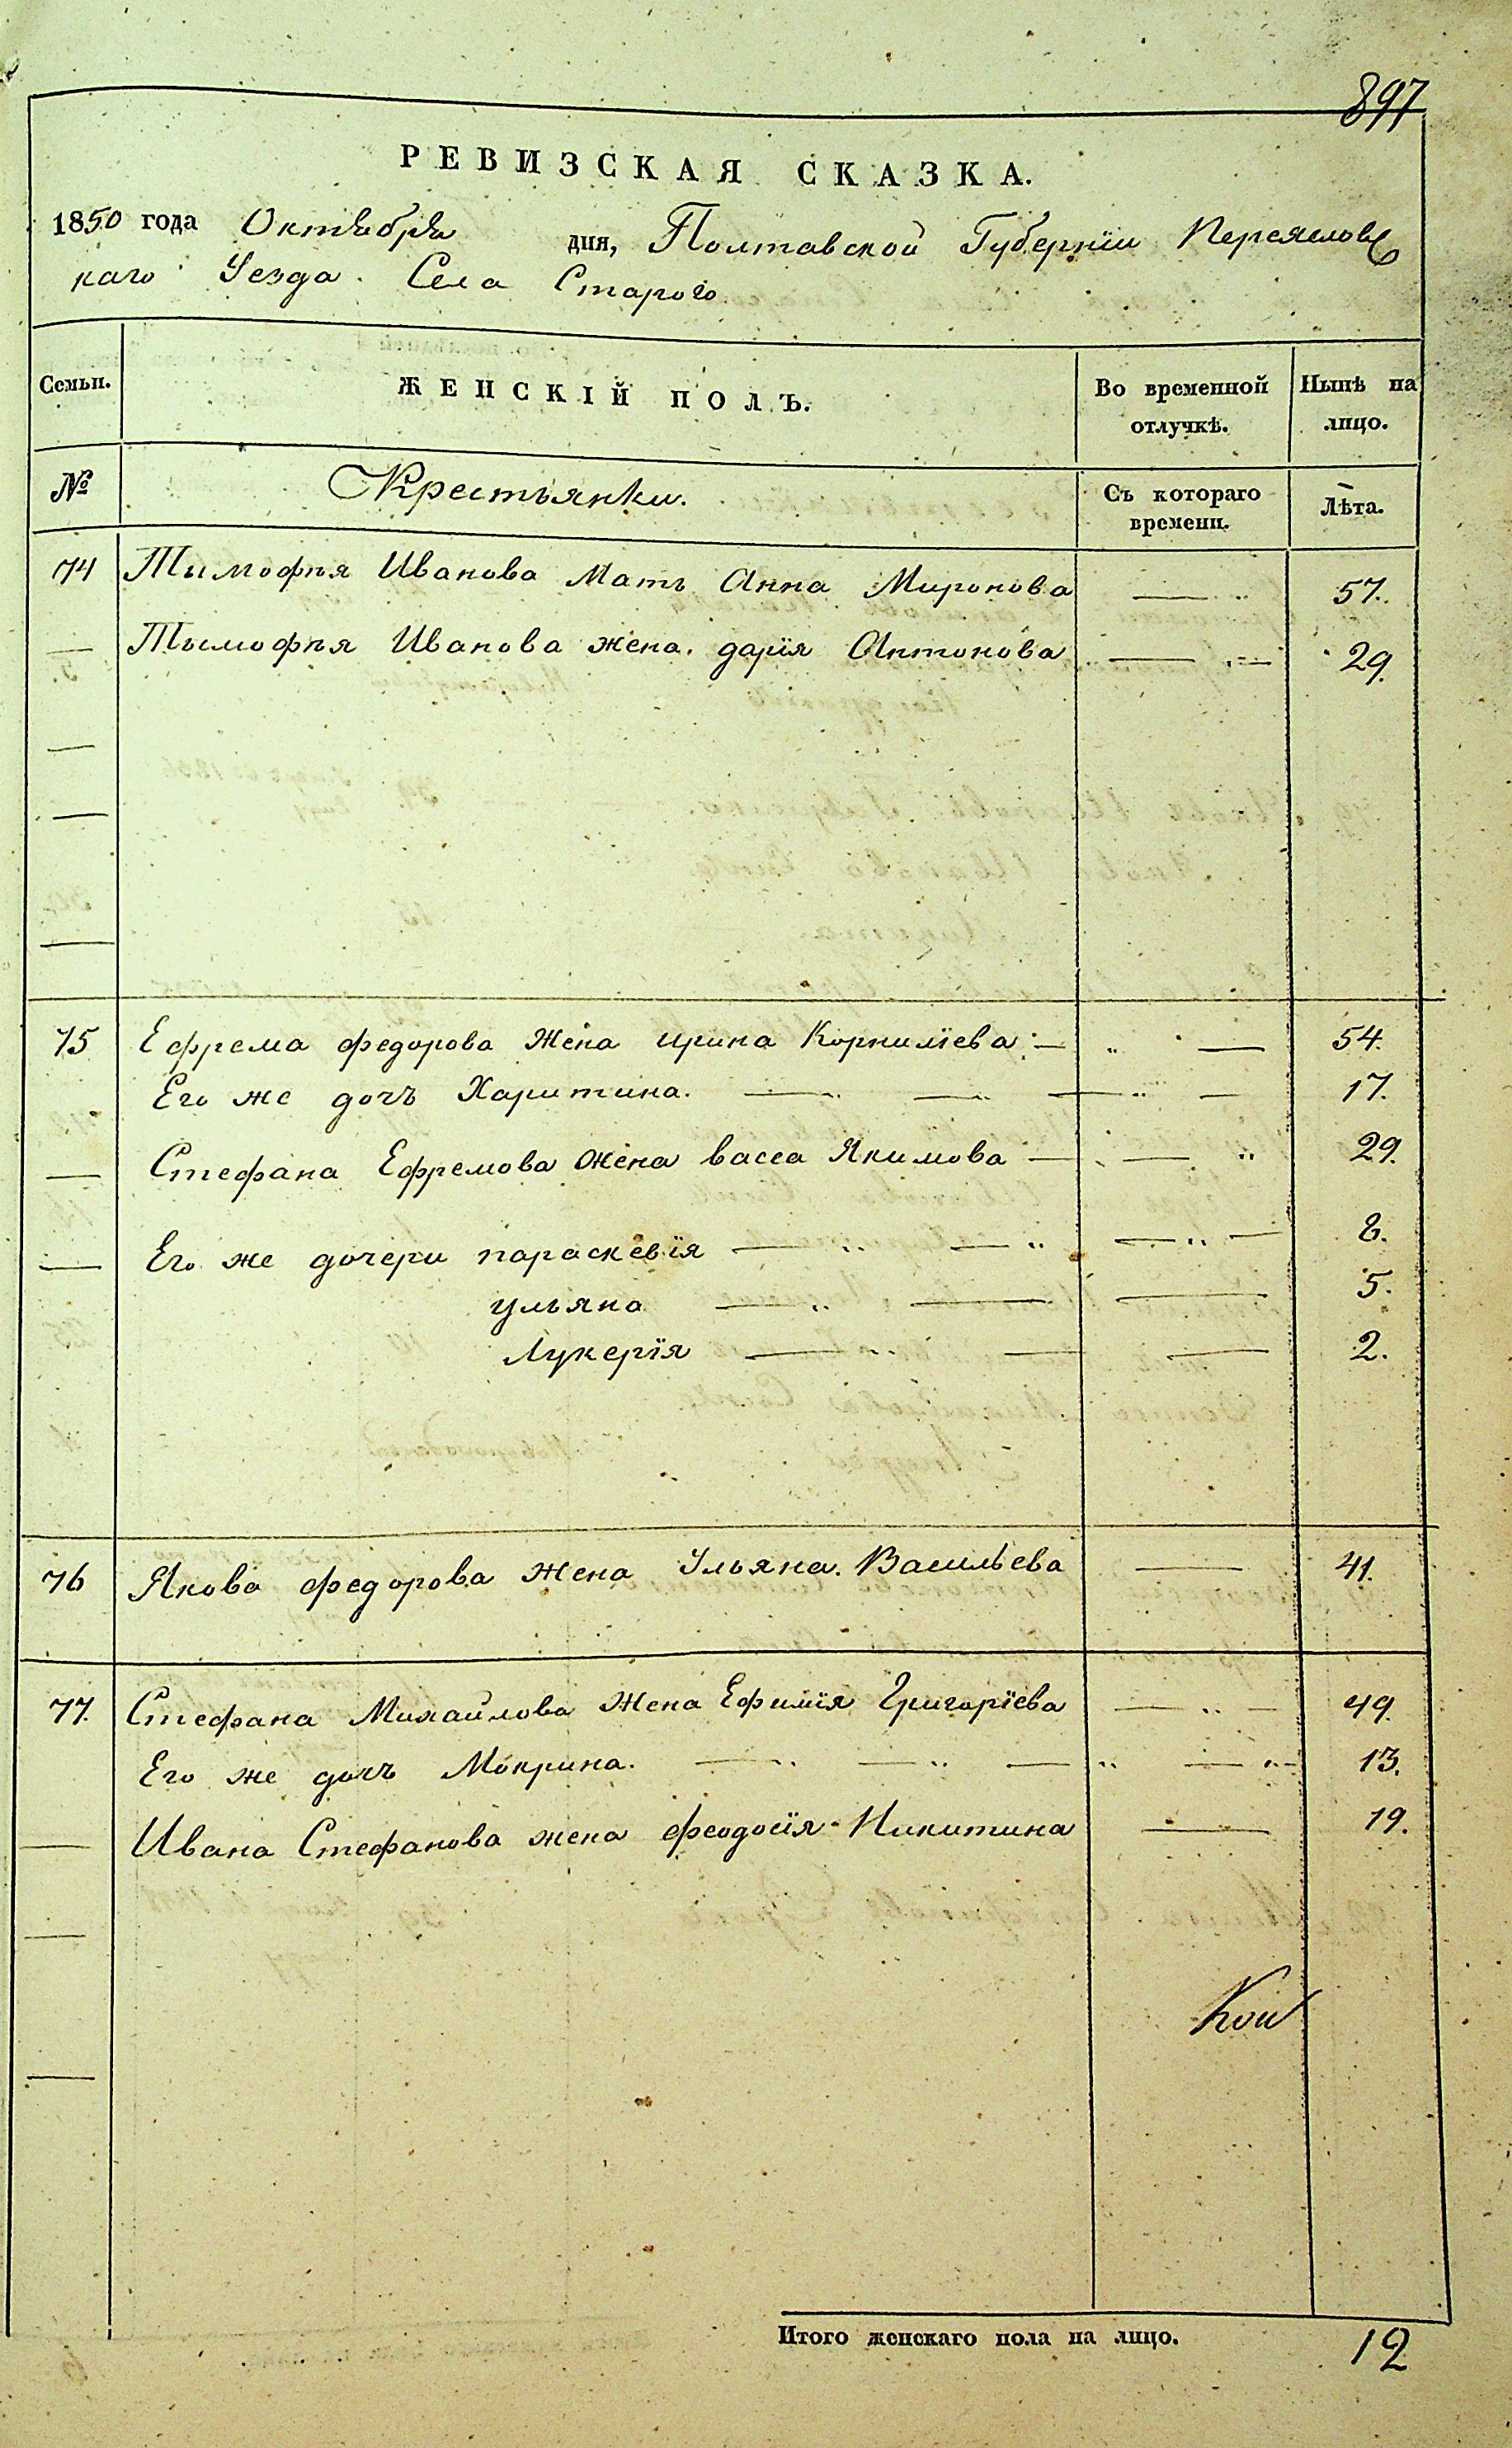 897
РЕВИЗСКАЯ СКАЗКА.
1850 года Октября дня, Полтавской Губернїи Переясловс
каго Уезда Села Старого
Семьи. ЖЕНСКІЙ ПОЛЪ. Во временной отлучкѣ. Нынѣ на лицо.
№ Крестьянки. Съ котораго времени. Лѣта.
74 Тимофѣя Иванова Мать Анна Миронова 57.
Тимофѣя Иванова жена. дарїя Антонова 29.
75 Ефрема федорова Жена ирина Корнилїева 54.
Его же дочъ Харитина. 17.
Стефана Ефремова жена васса Якимова 29.
Его же дочери параскевїя 8.
ульяна 5.
Лукерїя 2.
76 Якова федорова жена Ульяна. Васильева 41.
77. Стефана Михайлова Жена Ефимїя Григорїева 49.
Его же дочъ Мокрина. 13.
Ивана Стефанова жена феодосїя Никитина 19.
Итого женскаго пола на лицо. 12